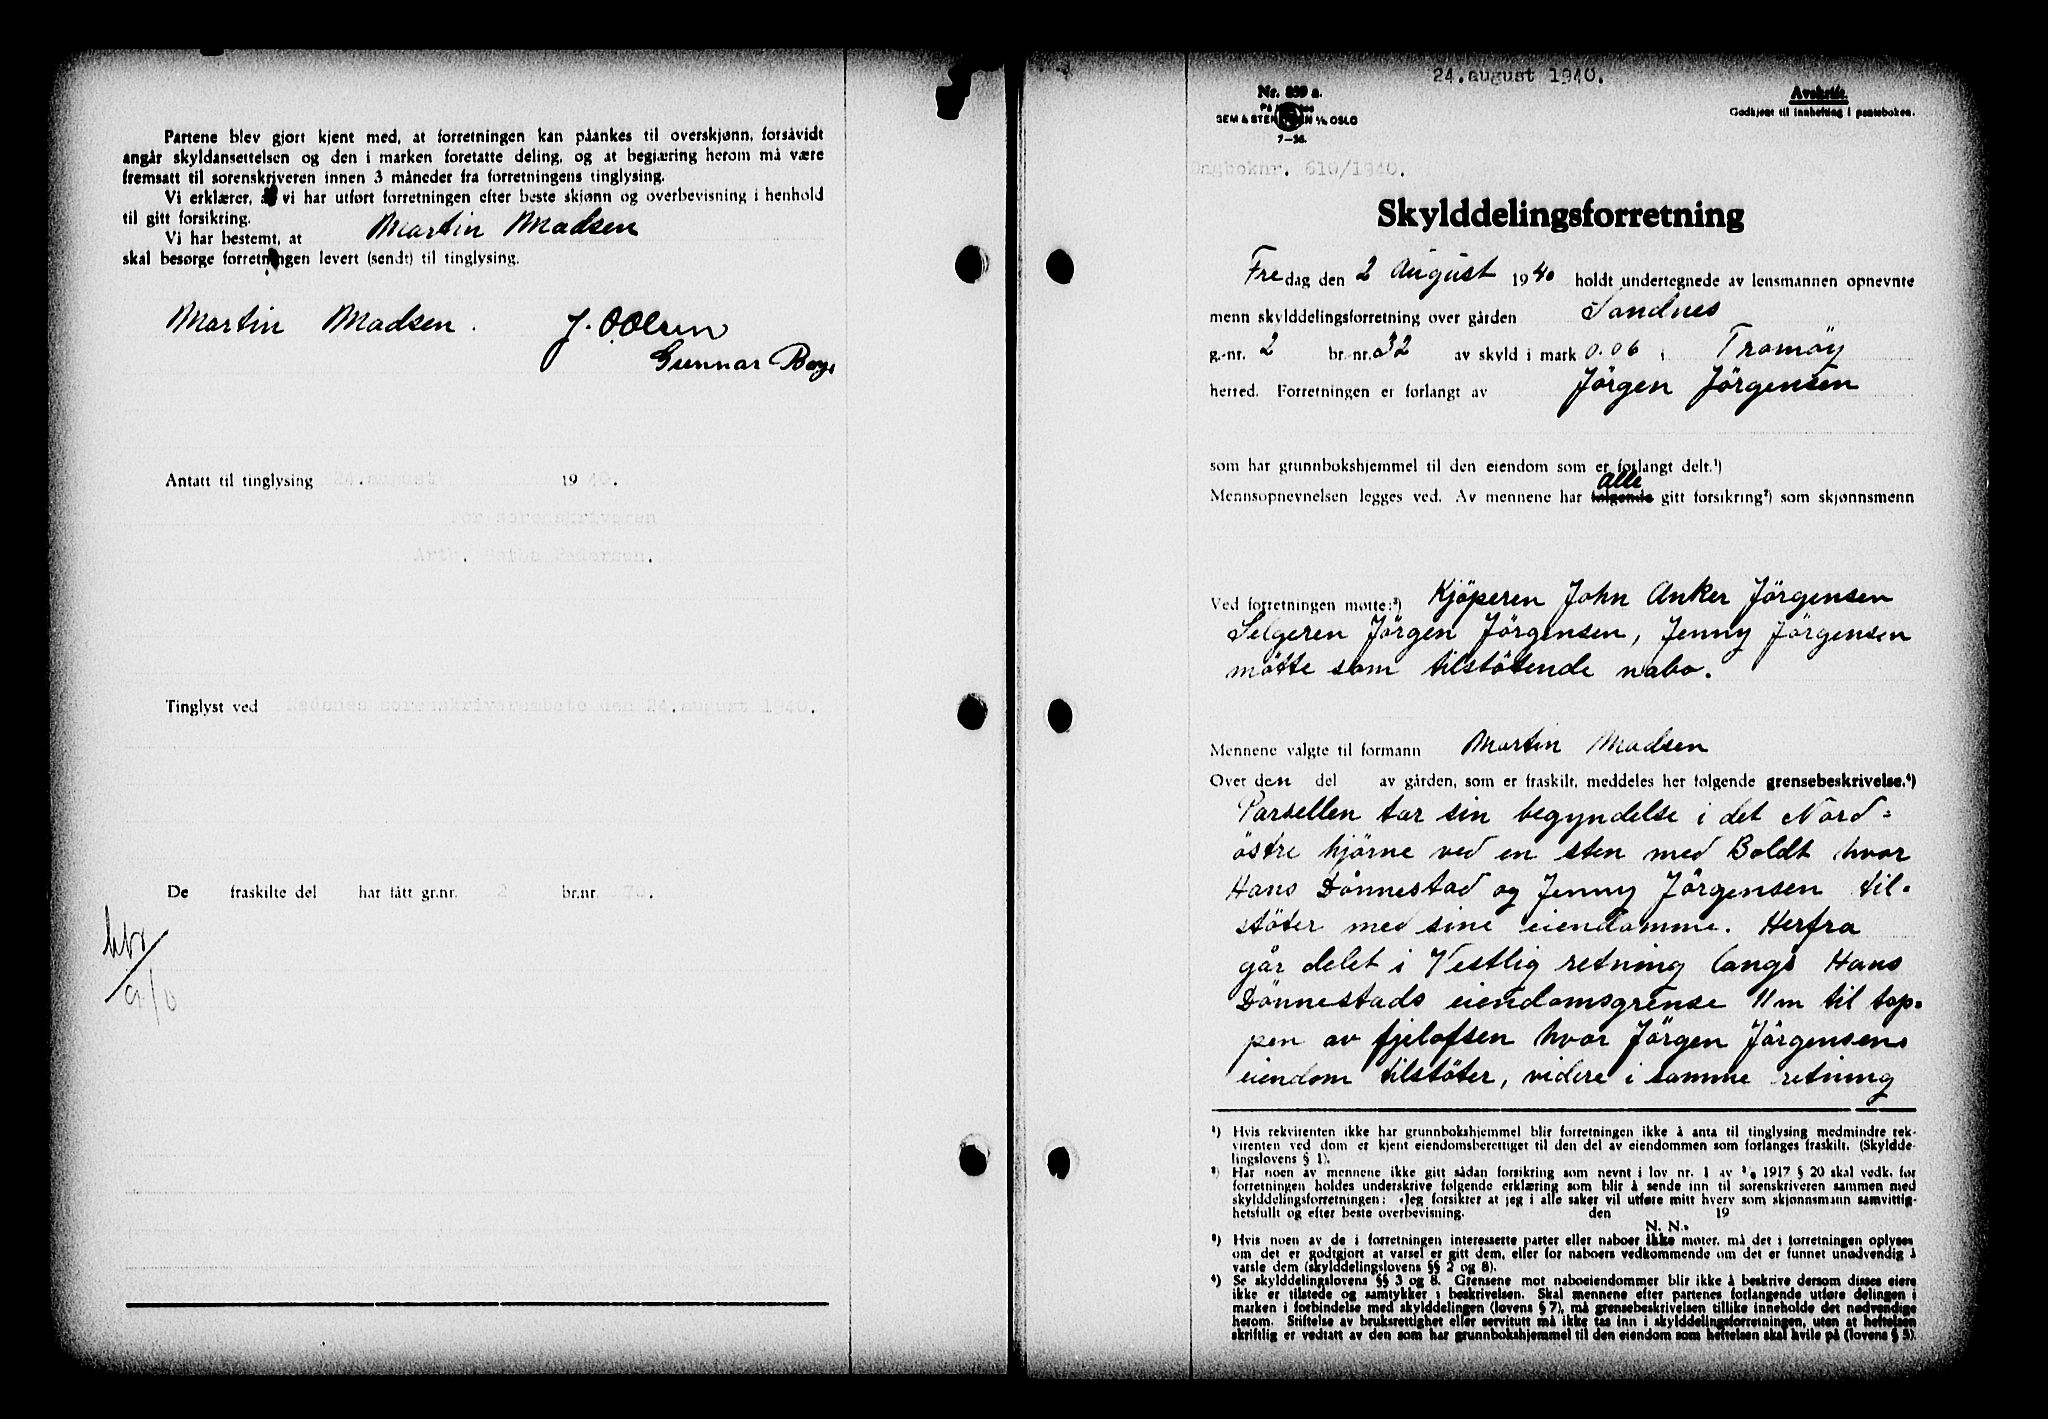 Partene blev gjort kjent med, at forretningen kan påankes til overskjønn, forsåvidt
angår skyldansettelsen og den i marken foretatte deling, og at begjæring herom må være
fremsatt til sorenskriveren innen 3 måneder fra forretningens tinglysing.
Vi erklærer, at vi har utført forretningen efter beste skjønn og overbevisning i henhold
til gitt forsikring.
Vi har bestemt, at Martin Madsen
skal besørge forretningen levert (sendt) til tinglysing.
Martin Madsen. J. O. Olsen
Gunnar Bøye
Antatt til tinglysing 24.august 1940.
For sorenskriveren
Arth. Pedersen.
Tinglyst ved Nedenes sorenskriverembete den 24.august 1940.
De fraskilte del har fått gr.nr. 2 br.nr. 70.
24.august 1940.
Nr. 839 a.
SEM & STENERSEN A/S OSLO
7-38.
Avskrift.
Godkjent til innhefting i panteboken.
Dagboknr. 610/1940.
Skylddelingsforretning
Fredag den 2 August 1940 holdt undertegnede av lensmannen opnevnte
menn skylddelingsforretning over gården Sandnes
g.-nr. 2 br.-nr. 32 av skyld i mark 0.06 i Tromøy
herred. Forretningen er forlangt av Jörgen Jörgensen
som har grunnbokshjemmel til den eiendom som er forlangt delt.¹)
alle
Mennsopnevnelsen legges ved. Av mennene har følgende gitt forsikring²) som skjønnsmenn
Ved forretningen møtte:³) Kjöperen John Anker Jörgensen
Selgeren Jörgen Jörgensen, Jenny Jörgensen
mötte som tilstötende nabo.
Mennene valgte til formann Martin Madsen
Over den del av gården, som er fraskilt, meddeles her følgende grensebeskrivelse.⁴)
Parsellen tar sin begyndelse i det Nord=
östre hjörne ved en sten med Boldt hvor
Hans Dönnestad og Jenny Jörgensen til-
stöter med sine eiendomme. Herfra
går delet i Vestlig retning langs Hans
Dönnestads eiendomsgrense 11 m til top-
pen av fjelofsen hvor Jörgen Jörgensens
eiendom tilstöter, videre i samme retning
¹) Hvis rekvirenten ikke har grunnbokshjemmel blir forretningen ikke å anta til tinglysing medmindre rek-
virenten ved dom er kjent eiendomsberettiget til den del av eiendommen som forlanges fraskilt. (Skyldde-
lingslovens § 1).
²) Har noen av mennene ikke gitt sådan forsikring som nevnt i lov nr. 1 av 1917 § 20 skal vedk. før
forretningen holdes underskrive følgende erklæring som blir å sende inn til sorenskriveren sammen med
skylddelingsforretningen: «Jeg forsikrer at jeg i alle saker vil utføre mitt hverv som skjønnsmann samvittig-
hetsfullt og efter beste overbevisning. den 19
N. N.»
³) Hvis noen av de i forretningen interesserte parter eller naboer ikke møter, må det i forretningen oplyses
om det er godtgjort at varsel er gitt dem, eller for naboers vedkommende om det er funnet unødvendig å
varsle dem (skylddelingslovens §§ 2 og 8).
⁴) Se skylddelingslovens §§ 3 og 8. Grensene mot naboeiendommer blir ikke å beskrive dersom disses eiere
ikke er tilstede og samtykker i beskrivelsen. Skal mennene efter partenes forlangende utføre delingen i
marken i forbindelse med skylddelingen (lovens § 7), må grensebeskrivelsen tillike inneholde det nødvendige
herom. Stiftelse av bruksrettighet eller servitutt må ikke tas inn i skylddelingsforretningen, uten at heftelsen
skriftlig er vedtatt av den som har grunnbokshjemmel til den eiendom som heftelsen skal hvile på (lovens § 5).